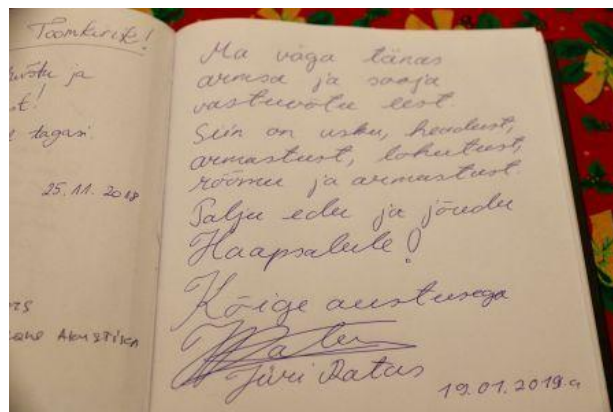 Toomkirik!
ja
tagasi.
25.11.2018
Ma väga tänas
armsa ja sooja
vastuvõtu eest.
Siin on usku, headust,
armastust, lohutust,
rõõmu ja armastust.
Palju edu ja jõudu
Haapsalule!
Kõige austusega
Jüri Ratas
19.01.2019.a